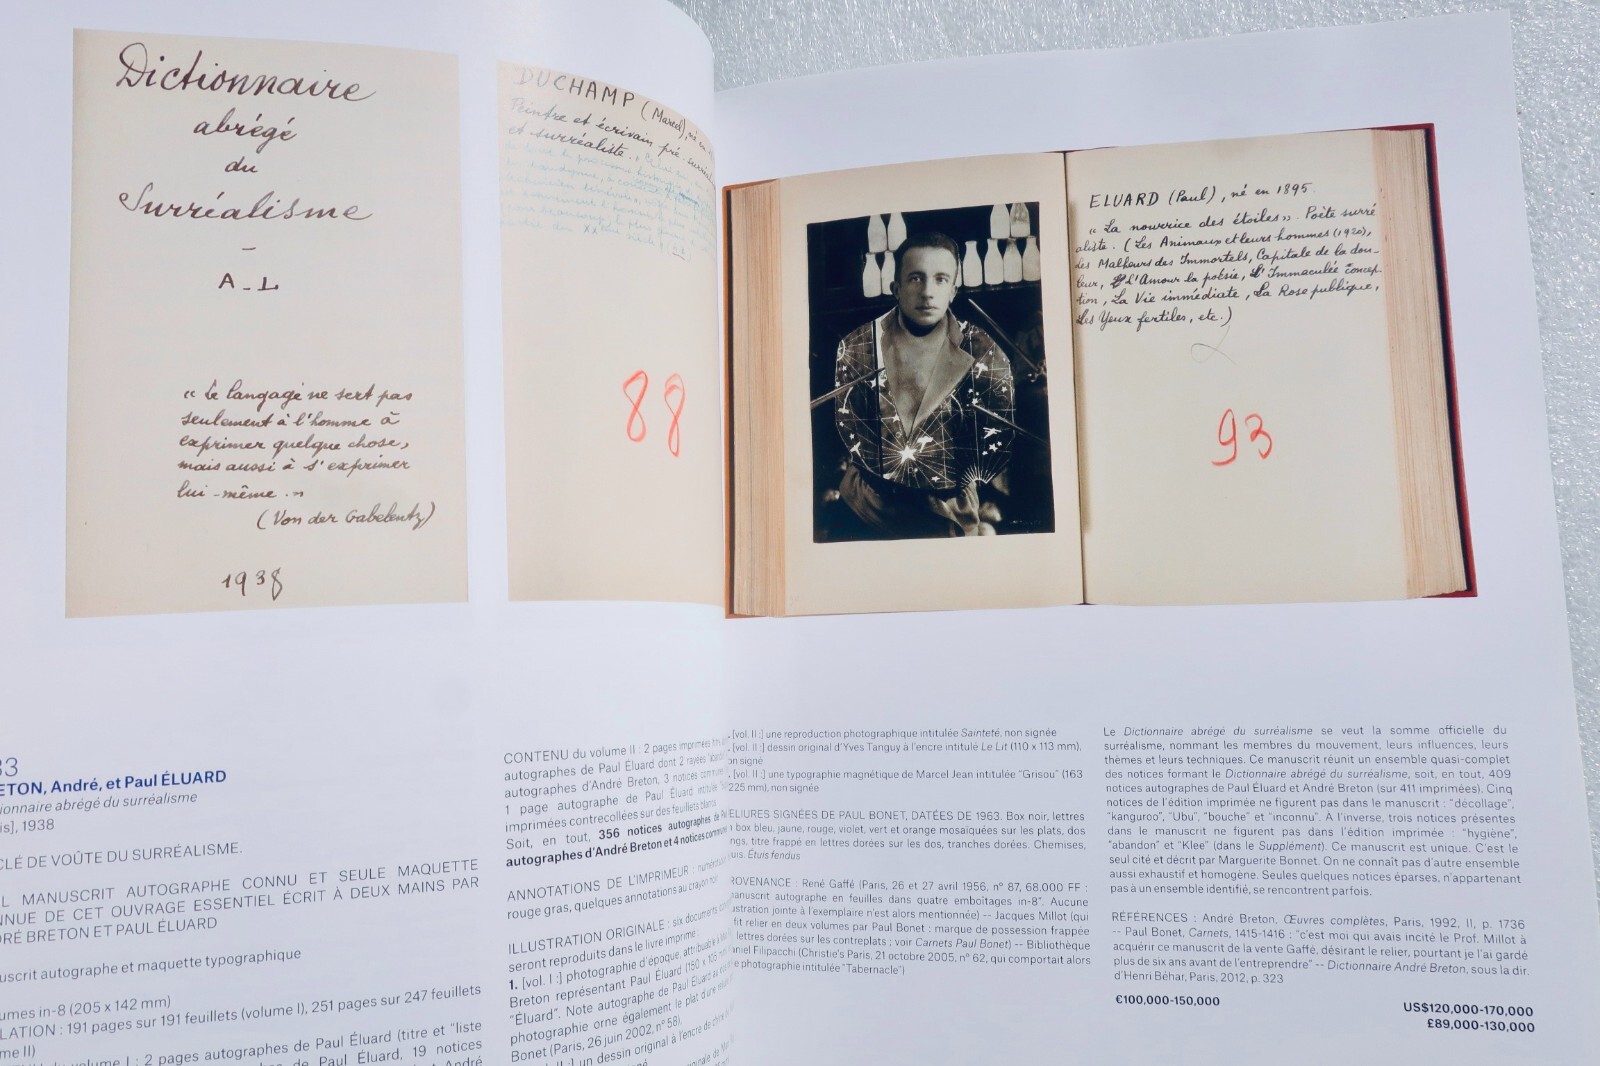 Dictionnaire
abrégé
du
Surréalisme
A - L
« Le langage ne sert pas
seulement à l'homme à
exprimer quelque chose,
mais aussi à s'exprimer
lui-même. »
(Von der Gabelentz)
1938
DUCHAMP (Marcel), né
Peintre et écrivain pré-
et surréaliste.
88
ELUARD (Paul), né en 1895.
« La nourrice des étoiles ». Poète surré
aliste. (Les Animaux et leurs hommes (1920),
Les Malheurs des Immortels, Capitale de la dou-
leur, L'Amour la poésie, L'Immaculée concep-
tion, La Vie immédiate, La Rose publique,
Les Yeux fertiles, etc.)
93
33
ETON, André, et Paul ÉLUARD
tionnaire abrégé du surréalisme
is], 1938
CLÉ DE VOÛTE DU SURRÉALISME.
L MANUSCRIT AUTOGRAPHE CONNU ET SEULE MAQUETTE
NNUE DE CET OUVRAGE ESSENTIEL ÉCRIT À DEUX MAINS PAR
DRÉ BRETON ET PAUL ÉLUARD
uscrit autographe et maquette typographique
umes in-8 (205 x 142 mm)
LATION : 191 pages sur 191 feuillets (volume I), 251 pages sur 247 feuillets
me II)
volume I : 2 pages autographes de Paul Éluard (titre et "liste
de Paul Éluard, 19 notices
André
CONTENU du volume II : 2 pages imprimées
autographes de Paul Éluard dont 2 rayées
autographes d'André Breton, 3 notices
1 page autographe de Paul Éluard intitulée
imprimées contrecollées sur des feuillets blancs
Soit, en tout, 356 notices autographes de
autographes d'André Breton et 4 notices
ANNOTATIONS DE L'IMPRIMEUR :
rouge gras, quelques annotations au crayon
ILLUSTRATION ORIGINALE : six documents
seront reproduits dans le livre imprimé
1. [vol. I :] photographie d'époque, attribuable à
Breton représentant Paul Éluard (150 x 105
"Éluard". Note autographe de Paul Éluard
photographie orne également le plat d'une
Bonet (Paris, 26 juin 2002, n° 58).
un dessin original à l'encre de
[vol. II :] une reproduction photographique intitulée Sainteté, non signée
[vol. II :] dessin original d'Yves Tanguy à l'encre intitulé Le Lit (110 x 113 mm),
on signé
[vol. II :] une typographie magnétique de Marcel Jean intitulée "Grisou" (163
225 mm), non signée
ELIURES SIGNÉES DE PAUL BONET, DATÉES DE 1963. Box noir, lettres
box bleu, jaune, rouge, violet, vert et orange mosaïquées sur les plats, dos
ngs, titre frappé en lettres dorées sur les dos, tranches dorées. Chemises,
uis. Étuis fendus
ROVENANCE : René Gaffé (Paris, 26 et 27 avril 1956, n° 87, 68.000 FF :
manuscrit autographe en feuilles dans quatre emboîtages in-8". Aucune
ustration jointe à l'exemplaire n'est alors mentionnée) -- Jacques Millot (qui
fit relier en deux volumes par Paul Bonet : marque de possession frappée
lettres dorées sur les contreplats ; voir Carnets Paul Bonet) -- Bibliothèque
aniel Filipacchi (Christie's Paris, 21 octobre 2005, n° 62, qui comportait alors
e photographie intitulée "Tabernacle")
Le Dictionnaire abrégé du surréalisme se veut la somme officielle du
surréalisme, nommant les membres du mouvement, leurs influences, leurs
thèmes et leurs techniques. Ce manuscrit réunit un ensemble quasi-complet
des notices formant le Dictionnaire abrégé du surréalisme, soit, en tout, 409
notices autographes de Paul Éluard et André Breton (sur 411 imprimées). Cinq
notices de l'édition imprimée ne figurent pas dans le manuscrit : "décollage",
"kanguroo", "Ubu", "bouche" et "inconnu". À l'inverse, trois notices présentes
dans le manuscrit ne figurent pas dans l'édition imprimée : "hygiène",
"abandon" et "Klee" (dans le Supplément). Ce manuscrit est unique. C'est le
seul cité et décrit par Marguerite Bonnet. On ne connaît pas d'autre ensemble
aussi exhaustif et homogène. Seules quelques notices éparses, n'appartenant
pas à un ensemble identifié, se rencontrent parfois.
RÉFÉRENCES : André Breton, Œuvres complètes, Paris, 1992, II, p. 1736
-- Paul Bonet, Carnets, 1415-1416 : "c'est moi qui avais incité le Prof. Millot à
acquérir ce manuscrit de la vente Gaffé, désirant le relier, pourtant je l'ai gardé
plus de six ans avant de l'entreprendre" -- Dictionnaire André Breton, sous la dir.
d'Henri Béhar, Paris, 2012, p. 323
€100,000-150,000
US$120,000-170,000
£89,000-130,000